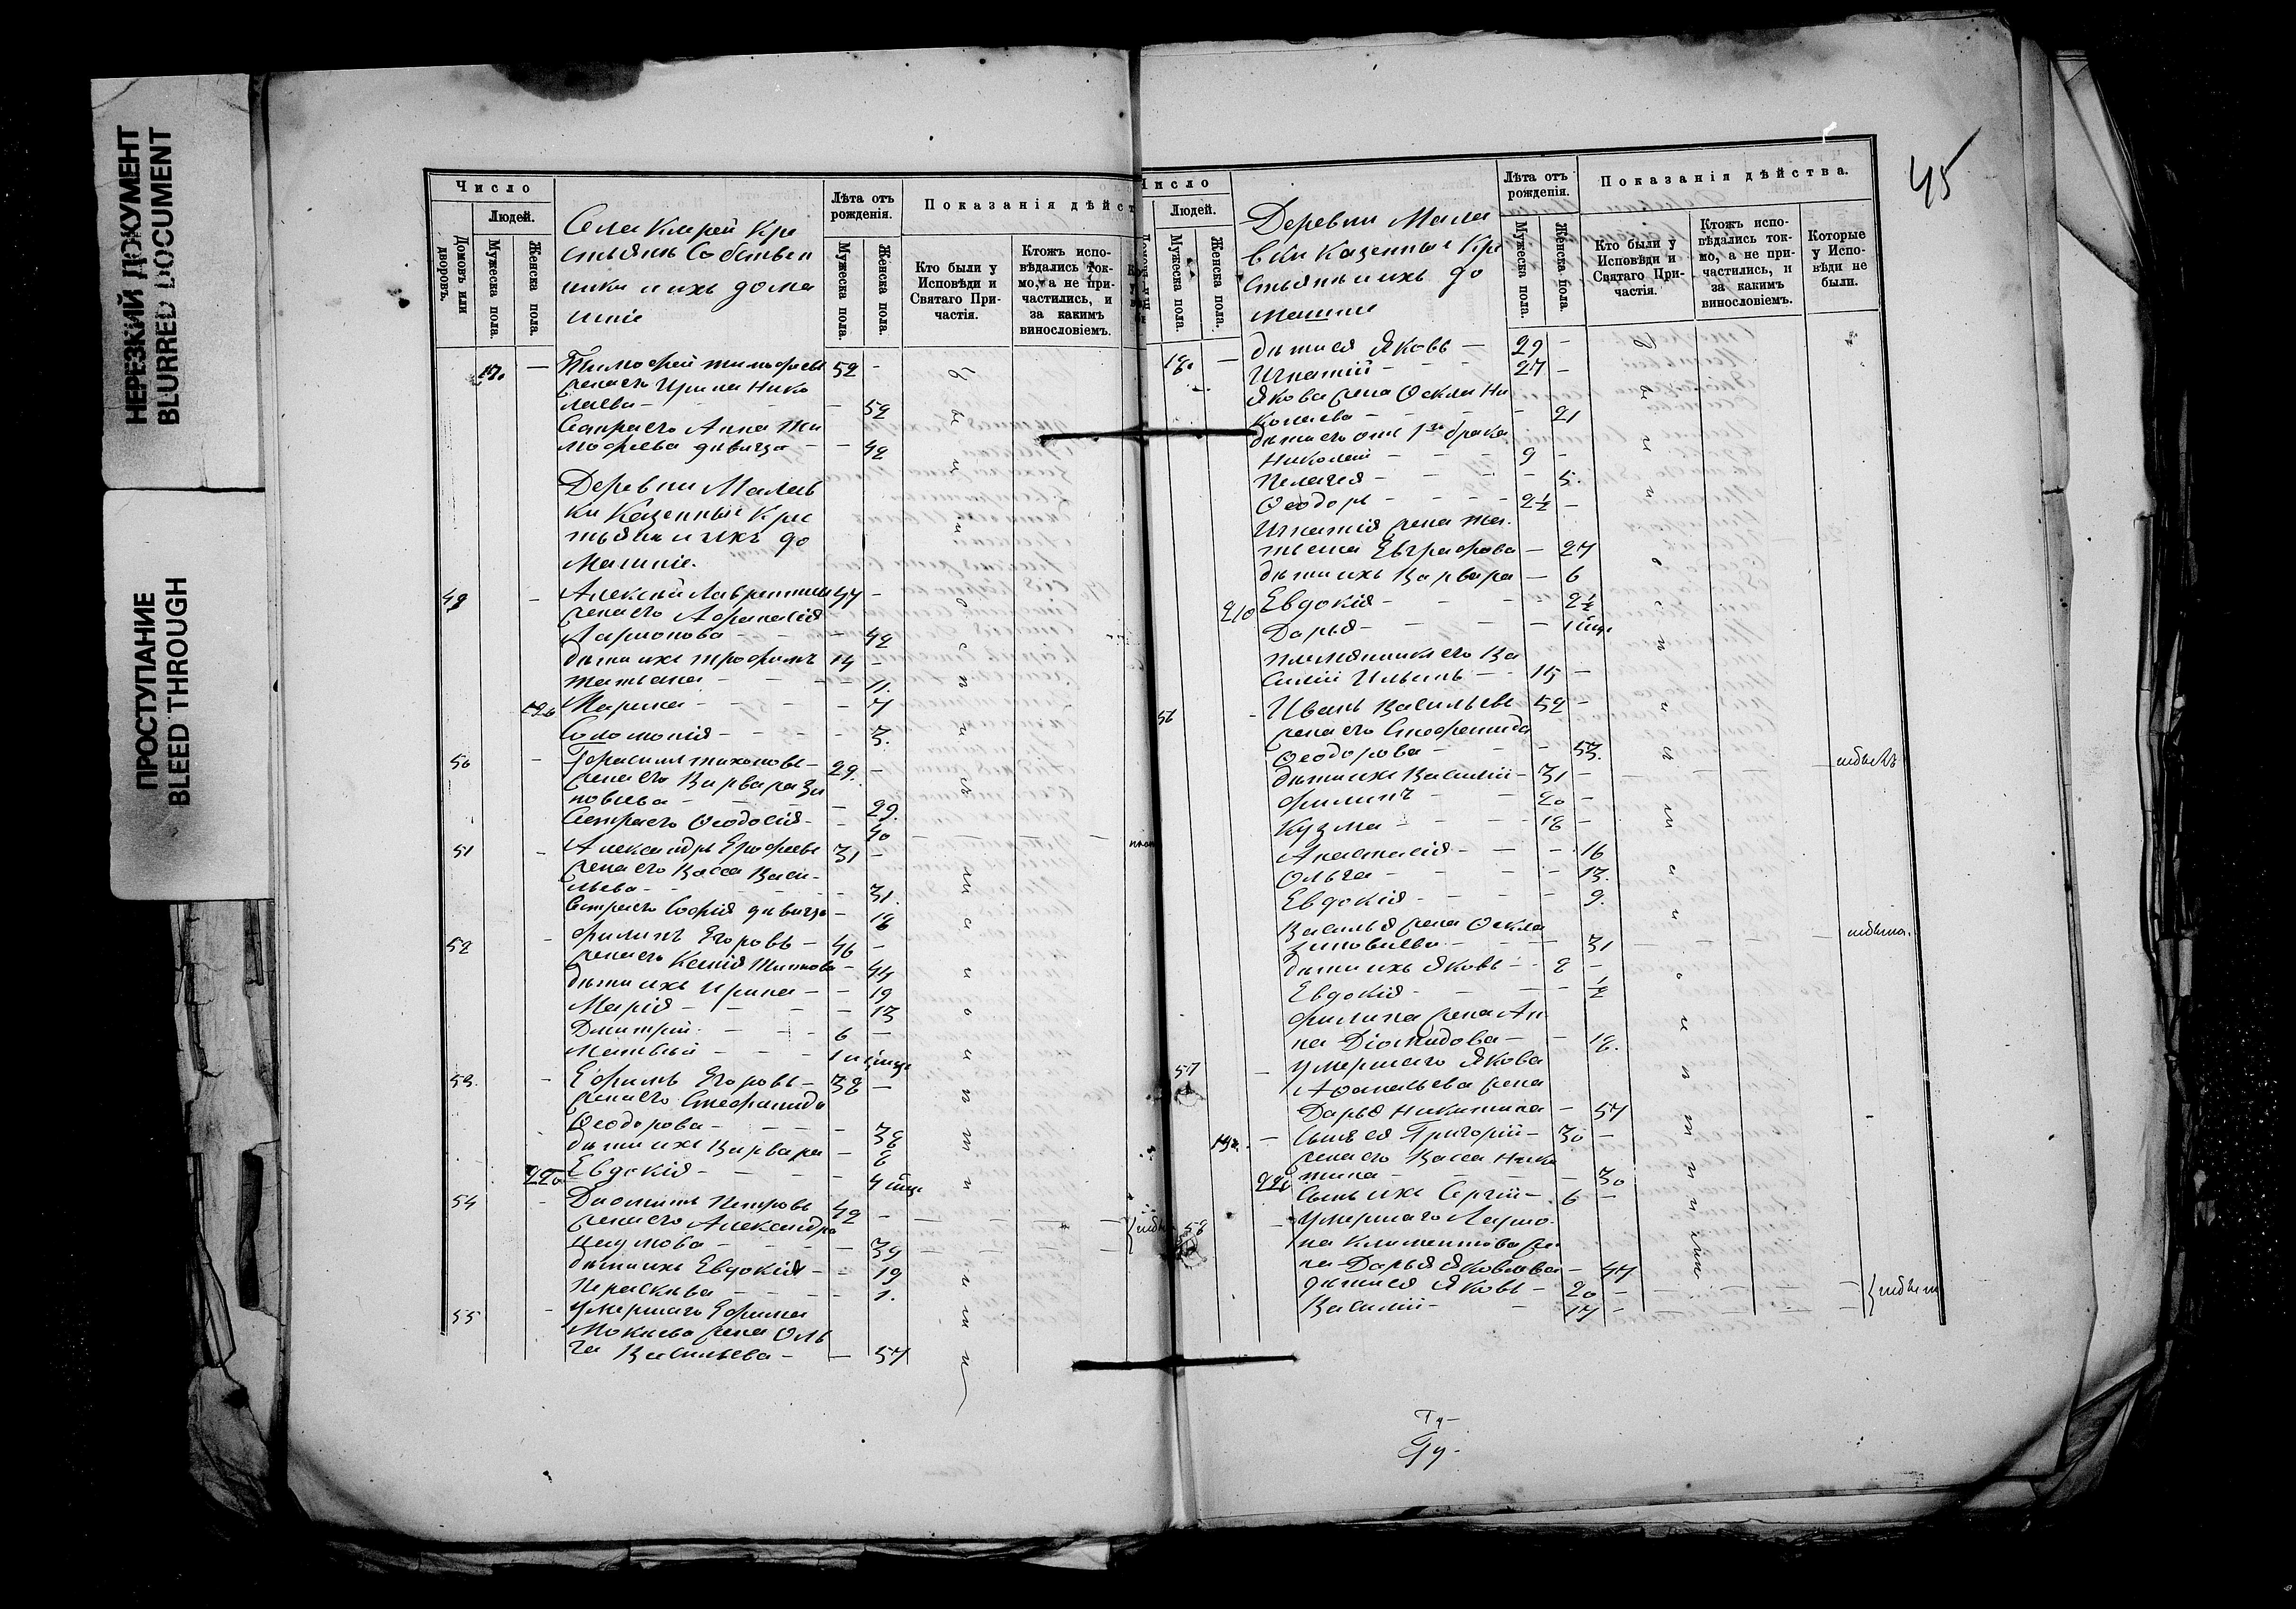 НЕРЕЗКИЙ ДОКУМЕНТ
BLURRED DOCUMENT
ПРОСТУПАНИЕ
BLEED THROUGH
Число
Людей.
Домовъ или дворовъ.
Мужеска пола.
Женска пола.
Села Кіерей Кре
стьянъ Собствен
ники и ихъ дома
шніе
Лѣта отъ рожденія.
Мужеска пола.
Женска пола.
Показанія дѣйст
Кто были у Исповѣди и Святаго Причастія.
Ктожъ исповѣдались токмо, а не причастились, и за какимъ винословіемъ.
170 — Тимофей Тимофеевъ 52 -
жена его Ирина Нико
лаева — 52
Сестра его Анна Ти
мофеева дѣвица — 42
Деревни Малав
ки Казенные Крес
тьяне и ихъ до
машніе.
49 - Алексѣй Лаврентьевъ 44 -
жена его Афанасія
Ларионова — 42
дѣти ихъ Трофимъ 14 -
Татьана — 11.
Марина — 7
Соломонія — 3.
50 - Герасимъ Тихоновъ — 29. -
жена его Варвара Зи
новьева — 29.
Сестра его Ѳеодосія — 40
51 - Александръ Ерофеевъ 31 -
жена его Васса Васи-
льева — 31.
Сестра его Софія дѣвица — 18
52 - Филипъ Егоровъ — 46 -
жена его Ксенія Титова — 44
дѣти ихъ Ирина — 19
Марія — 13
Дмитрій — 6 —
Матвѣй — 1
53. - Ефимъ Егоровъ — 38 —
жена его Стефанида
Ѳеодорова — 38
дѣти ихъ Варвара — 8
220 Евдокія — 4
54 - Диомитъ Петровъ 42 -
жена его Александра
Наумова — 39
дѣти ихъ Евдокія — 19
Параскева — 1.
55 - Умершаго Ефима
Мокиева жена Оль
га Васильева — 57
Были и о с п и
45
Число
Людей.
Мужеска пола.
Женска пола.
Деревни Мала
вки Казенные Кре
стьяне и ихъ до
машние
Лѣта отъ рожденія.
Мужеска пола.
Женска пола
Показанія дѣйства.
Кто были у Исповѣди и Святаго Причастія.
Ктожъ исповѣдались токмо, а не причастились, и за какимъ винословіемъ.
Которые у Исповѣди не были.
180 — дѣти ея Яковъ — 29 -
Игнатій — 27 -
Якова жена Ѳекла Ни
колаева — 21
дѣти его отъ 1го брака
Николай — 9 -
Пелагея — 5.
Ѳеодоръ — 2½ —
Игнатія жена Та
тьяна Евграфова — 27
дѣти ихъ Варвара — 6
210 Евдокія — 2½
Дарья — 1
племянникъ его Ва
силій Ильинъ — 15 —
56 - Иванъ Васильевъ 52 -
жена его Стефанида
Ѳеодорова — 53.
дѣти ихъ Василій — 31 —
Филипъ — 20 -
Кузма — 18 -
Анастасія — 16
Ольга — 13.
Евдокія — 9.
Василья жена Ѳекла
Зиновьева — 31
дѣти ихъ Яковъ — 8 -
Евдокія — ½
Филипа жена Ан
на Діомидова — 18.
57 — Умершаго Якова
Афанасьева жена
Дарья Никитина — 57
190. — Сынъ ея Григорій — 30 —
жена его Васса Ники
тина — 30
220 Сынъ ихъ Сергій — 6 —
58 — Умершаго Ларио
на Климентова же
на Дарья Яковлева — 47
дѣти ея Яковъ — 20 -
Василій — 17 -